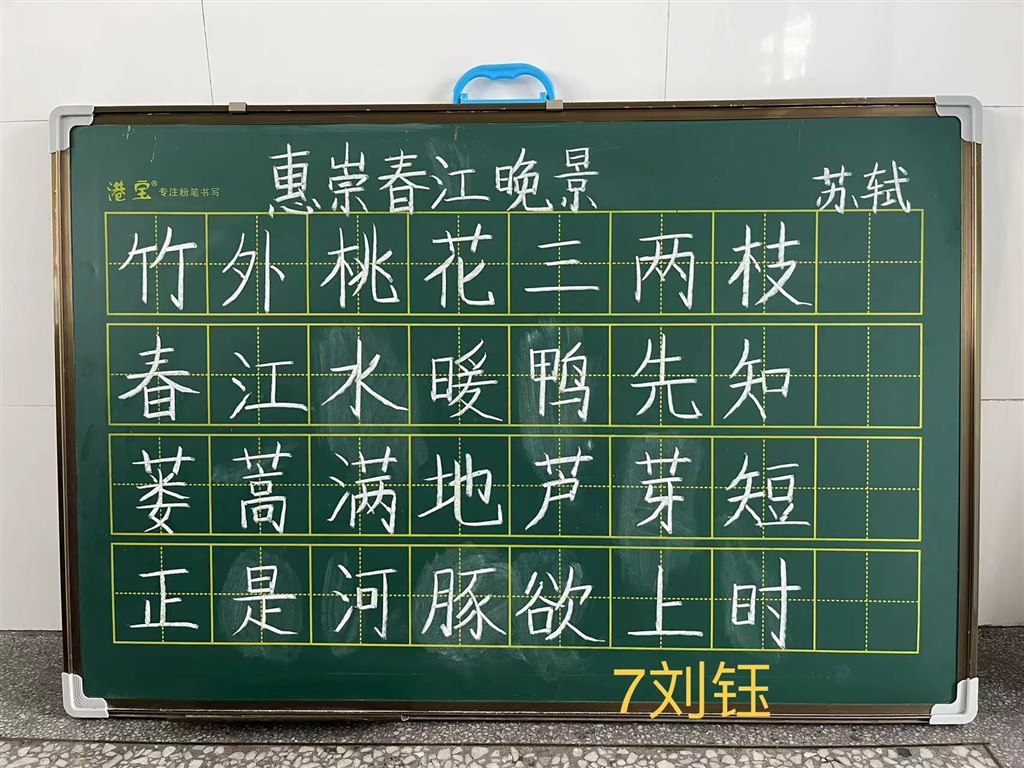 惠崇春江晚景
港宝® 专注粉笔书写
苏轼
竹外桃花三两枝
春江水暖鸭先知
蒌蒿满地芦芽短
正是河豚欲上时
7刘钰